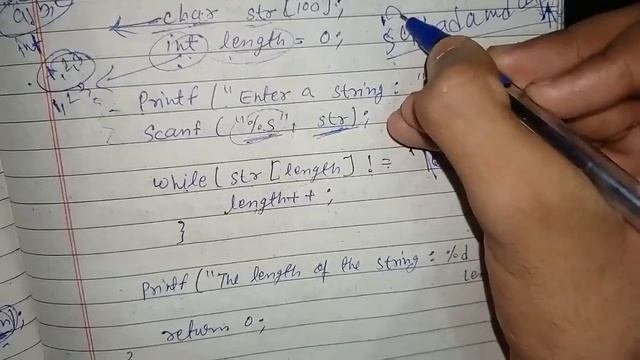 char str[100];
int
int length = 0;
Printf ("Enter a string: "
Scanf ("%s", str);
while (str [length] != '
length++;
}
Printf ("The length of the string: %d
return 0;
}